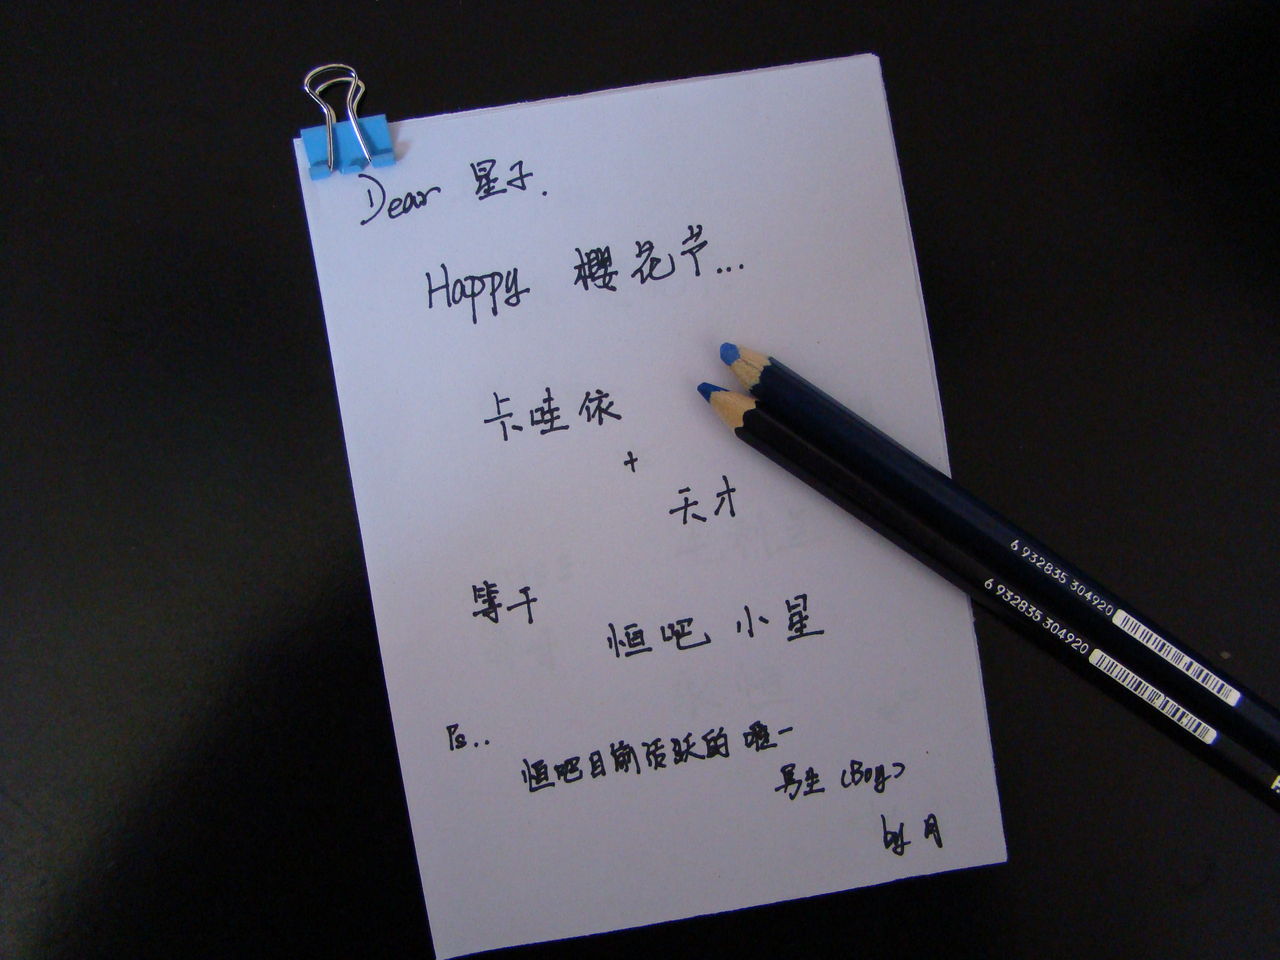 Dear 星子.
Happy 樱花节...
卡哇依
+
天才
等于
恒吧小星
Ps..
恒吧目前活跃的唯一
男生 (Boy)
by 月
6 932835 304920
6 932835 304920